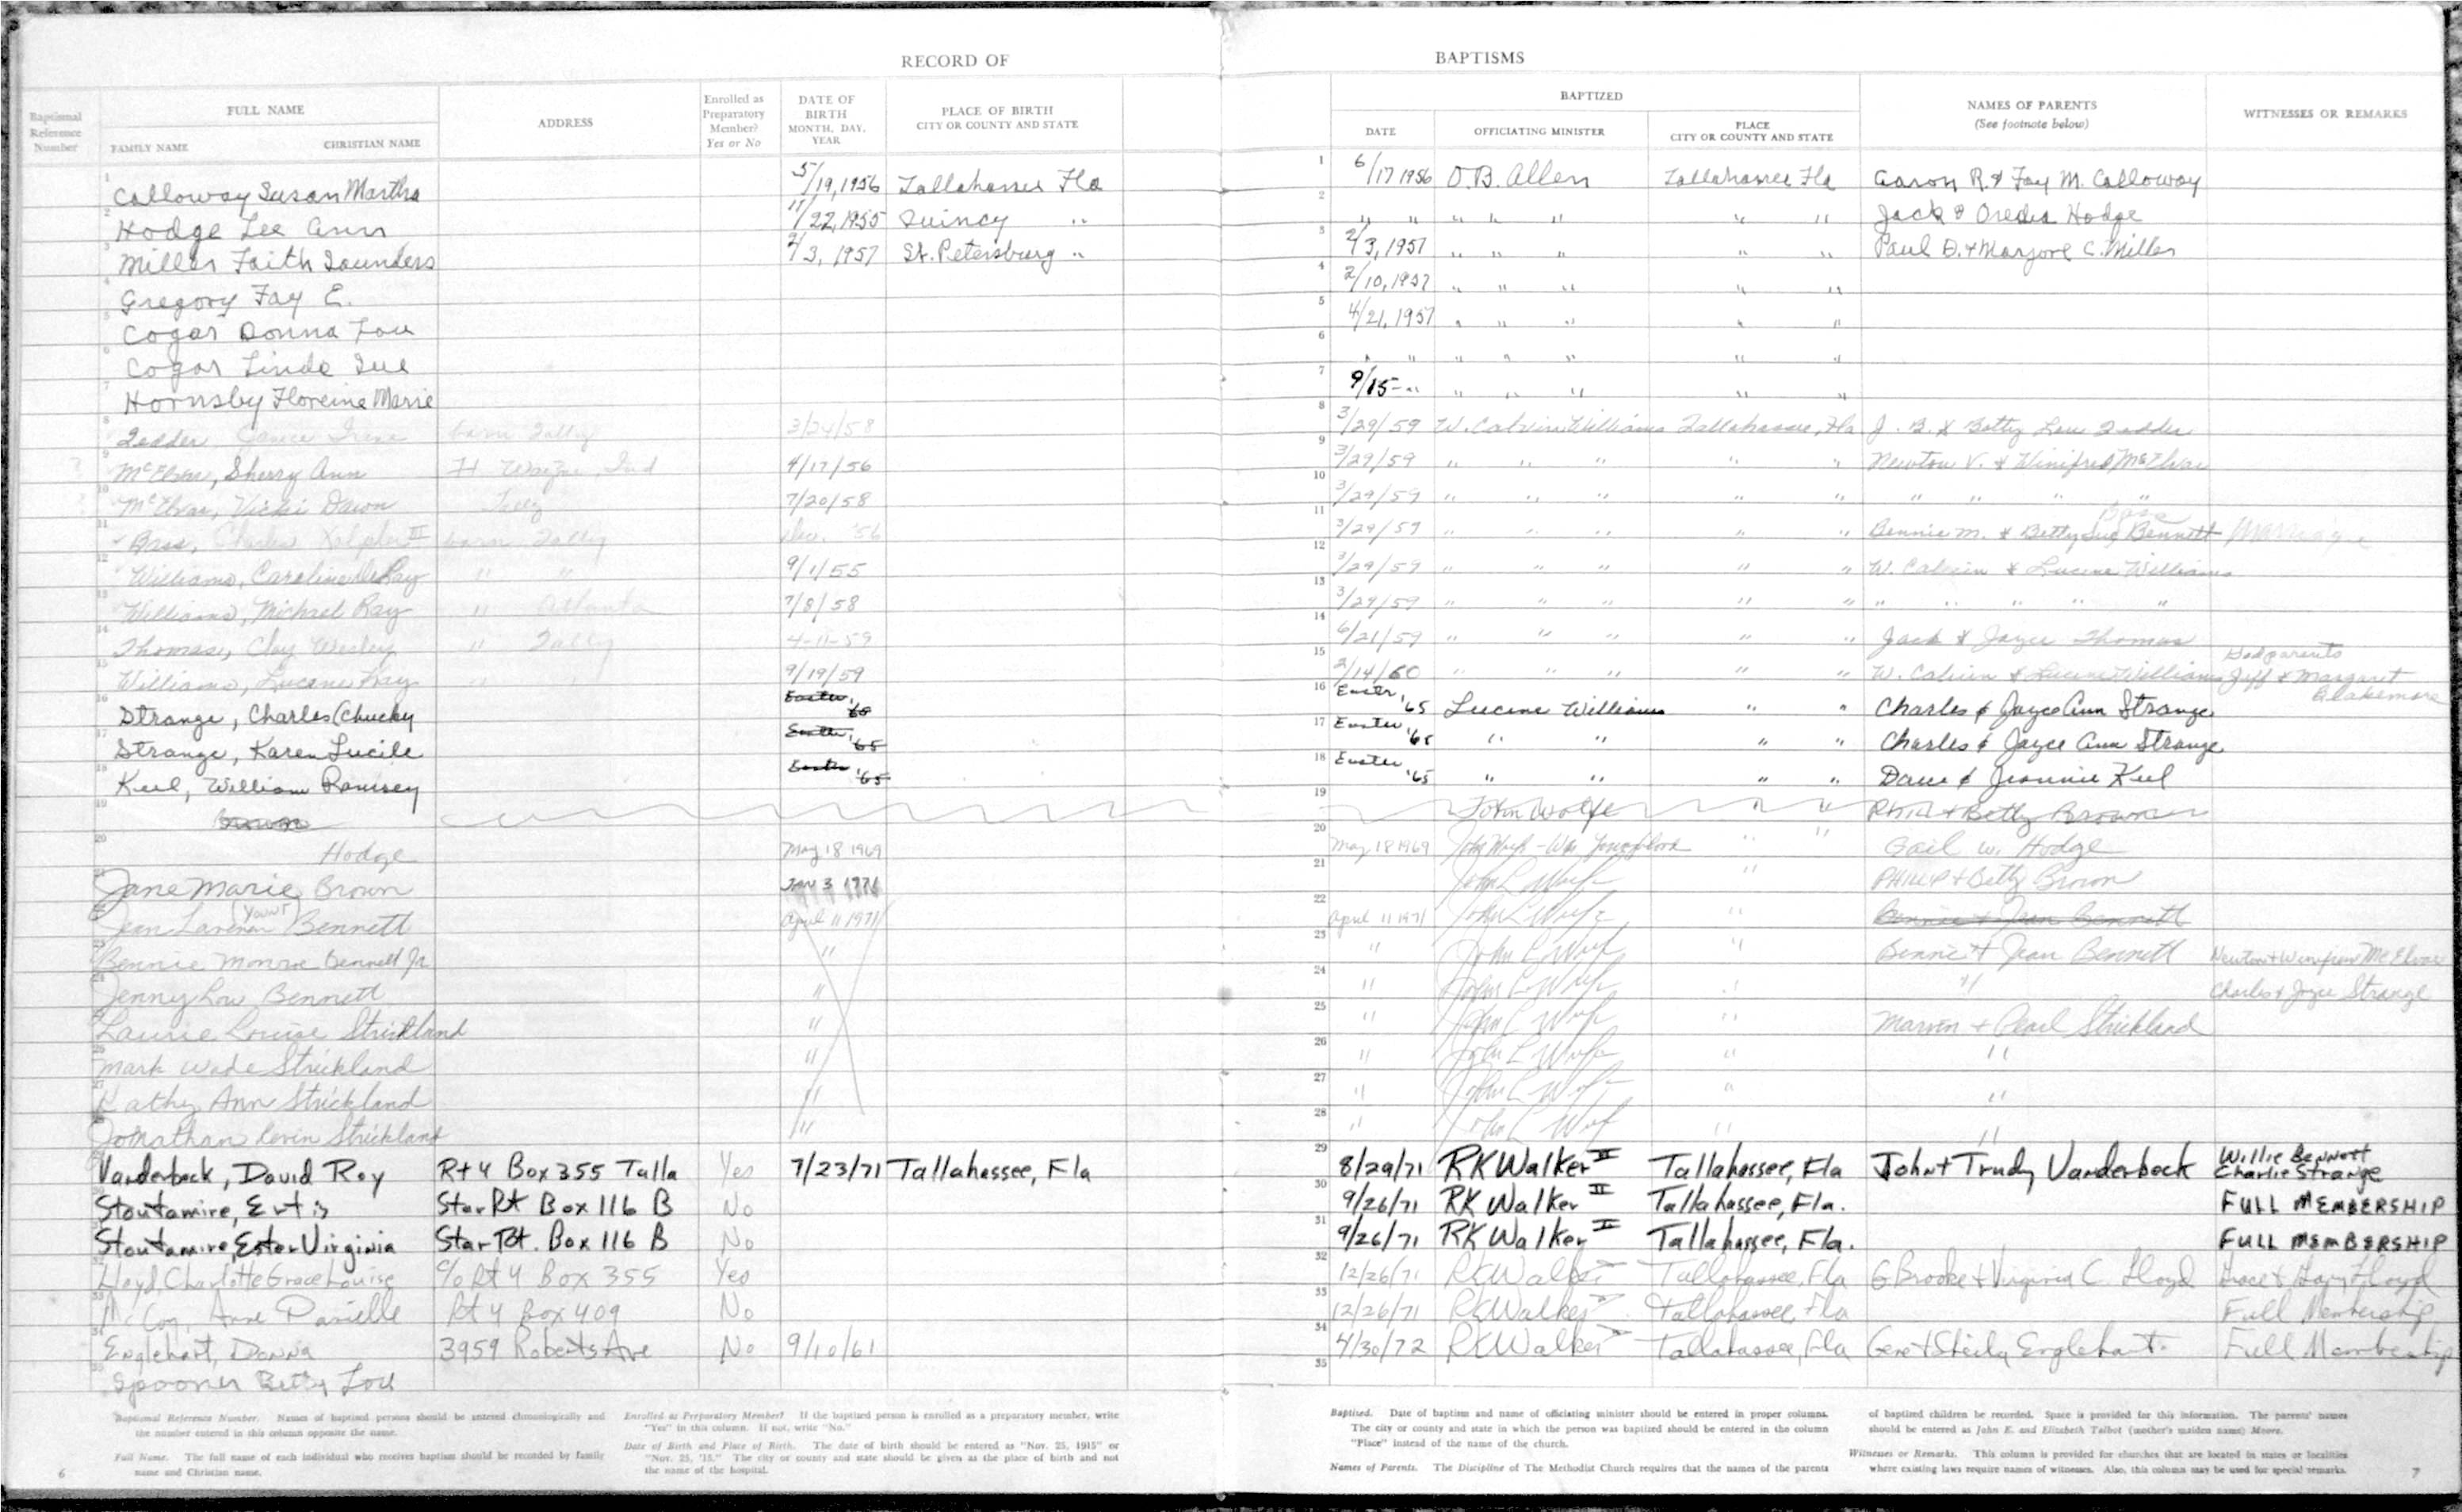 RECORD OF BAPTISMS
Baptismal Reference Number
FULL NAME
FAMILY NAME CHRISTIAN NAME
ADDRESS
Enrolled as Preparatory Member? Yes or No
DATE OF BIRTH MONTH, DAY, YEAR
PLACE OF BIRTH CITY OR COUNTY AND STATE
BAPTIZED
DATE OFFICIATING MINISTER PLACE CITY OR COUNTY AND STATE
NAMES OF PARENTS (See footnote below)
WITNESSES OR REMARKS
1 Calloway Susan Martha 5/19, 1956 Tallahassee Fla 6/17 1956 O.B. Allen Tallahassee Fla Aaron R. & Fay M. Calloway
2 Hodge Lee Ann 11/22, 1955 Quincy " " " " " " " " Jack & Hodge
3 Miller Faith Saunders 2/3, 1957 St. Petersburg " 2/3, 1957 " " " " " Paul D. + Marjore C. Miller
4 Gregory Fay E. 2/10, 1957 " " " " "
5 Cogar Donna Lou 4/21, 1957 " " " " "
6 Cogar Linda Sue " " " " " " "
7 Hornsby Floreine Marie 9/15- " " " " " "
8 Tedder, Janice Irene born Tally 3/24/58 3/29/59 W. Calvin Williams Tallahassee, Fla J. B. & Betty Lou Tedder
9 McElvae, Sherry Ann Ft Wayne, Ind 4/17/56 3/29/59 " " " " " Newton V. & Winifred McElvae
10 McElvae, Vicki Dawn Tally 7/20/58 3/29/59 " " " " " " " " "
11 Bass, Charles III born Tally Dec. '56 3/29/59 " " " " " Bennie M. & Betty Sue Bass Bennett Marriage
12 Williams, Caroline " " 9/1/55 3/29/59 " " " " " W. Calvin & Lucene Williams
13 Williams, Michael Ray " Atlanta 7/8/58 3/29/59 " " " " " " " " " "
14 Thomas, Clay Wesley " Tally 4-11-59 6/21/59 " " " " " Jack & Joyce Thomas
15 Williams, Lucene Kay " " 9/19/59 2/14/60 " " " " " W. Calvin & Lucene Williams Godparents Jeff & Margaret Blakemore
16 Strange, Charles (Chucky Easter, '65 Easter, '65 Lucene Williams " " Charles & Joyce Ann Strange
17 Strange, Karen Lucile Easter, '65 Easter, '65 " " " " Charles & Joyce Ann Strange
18 Keel, William Ramsey Easter '65 Easter '65 " " " " Dave & Jeannie Keel
19 Brown John Wolfe " " Phil + Betty Brown
20 Hodge May 18 1969 May 18 1969 John Wolfe - Wm Youngblood " " Gail W. Hodge
21 Jane Marie Brown Jan 3 1971 John L Wolfe " Phillip + Betty Brown
22 Jean (Yawn) Bennett April 11 1971 April 11 1971 John L Wolfe " Bennie + Jean Bennett
23 Bennie Monroe Bennett Jr " " John L Wolfe " Bennie + Jean Bennett Newton + Winifred McElvae
24 Jenny Low Bennett " " John L Wolfe " " Charles & Joyce Strange
25 Laurie Louise Strickland " " John L Wolfe " Marvin + Pearl Strickland
26 Mark Wade Strickland " " John L Wolfe " "
27 Kathy Ann Strickland " " John L Wolfe " "
28 Jonathan Kevin Strickland " " John L Wolfe " "
29 Vanderbeck, David Roy Rt 4 Box 355 Talla Yes 7/23/71 Tallahassee, Fla 8/29/71 RK Walker II Tallahassee, Fla John + Trudy Vanderbeck Willie Bennett Charlie Strange
30 Stoutamire, Ertis Star Rt Box 116 B No 9/26/71 RK Walker II Tallahassee, Fla. FULL MEMBERSHIP
31 Stoutamire, Ester Virginia Star Rt. Box 116 B No 9/26/71 RK Walker II Tallahassee, Fla. FULL MEMBERSHIP
32 Lloyd, Charlotte Grace Louise c/o Rt 4 Box 355 Yes 12/26/71 RK Walker II Tallahassee, Fla G Brooke + Virginia C. Lloyd Grace + Lloyd
33 McCoy, Anne Danielle Rt 4 Box 409 No 12/26/71 RK Walker II Tallahassee, Fla Full Membership
34 Englehart, Donna 3959 Roberts Ave No 9/10/61 4/30/72 RK Walker II Tallahassee, Fla Gene + Sheila Englehart Full Membership
35 Spooner Betty Lou
Baptismal Reference Number. Names of baptized persons should be entered chronologically and the number entered in this column opposite the name.
Full Name. The full name of each individual who receives baptism should be recorded by family name and Christian name.
Enrolled as Preparatory Member? If the baptized person is enrolled as a preparatory member, write "Yes" in this column. If not, write "No."
Date of Birth and Place of Birth. The date of birth should be entered as "Nov. 25, 1915" or "Nov. 25, '15." The city or county and state should be given as the place of birth and not the name of the hospital.
6
Baptized. Date of baptism and name of officiating minister should be entered in proper columns. The city or county and state in which the person was baptized should be entered in the column "Place" instead of the name of the church.
Names of Parents. The Discipline of The Methodist Church requires that the names of the parents of baptized children be recorded. Space is provided for this information. The parents' names should be entered as John E. and Elizabeth Talbot (mother's maiden name) Moore.
Witnesses or Remarks. This column is provided for churches that are located in states or localities where existing laws require names of witnesses. Also, this column may be used for special remarks.
7